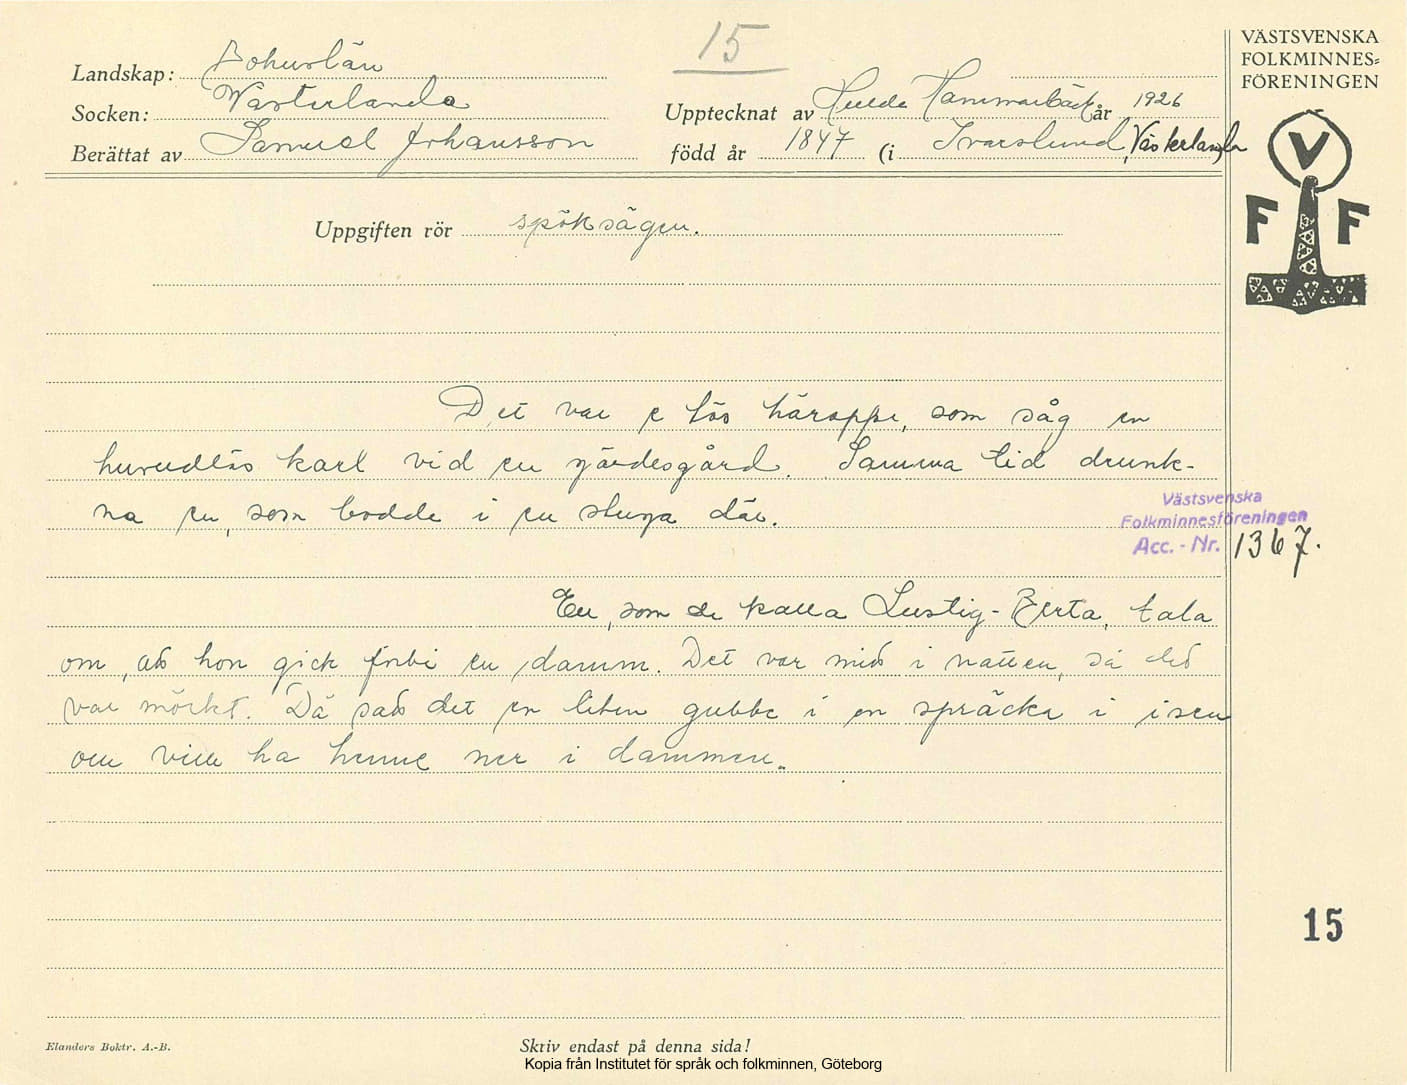 15
VÄSTSVENSKA
FOLKMINNES=
FÖRENINGEN
Landskap: Bohuslän
Socken: Västerlanda
Upptecknat av Hulda Hammarbäck år 1926
Berättat av Samuel Johansson
född år 1847 (i Ivarslund, Västerlanda
V
F F
Uppgiften rör spöksägen.
Det var e tös häroppe, som såg en
huvudlös karl vid en gärdesgård. Samma tid drunk-
na en, som bodde i en stuga där.
Västsvenska
Folkminnesföreningen
Acc. - Nr. 1367.
En, som de kalla Lustig-Berta, tala
om, att hon gick förbi en damm. Det var mitt i natten, så det
var mörkt. Då satt det en liten gubbe i en spräcka i isen
och ville ha henne ner i dammen.
15
Elanders Boktr. A.-B.
Skriv endast på denna sida!
Kopia från Institutet för språk och folkminnen, Göteborg